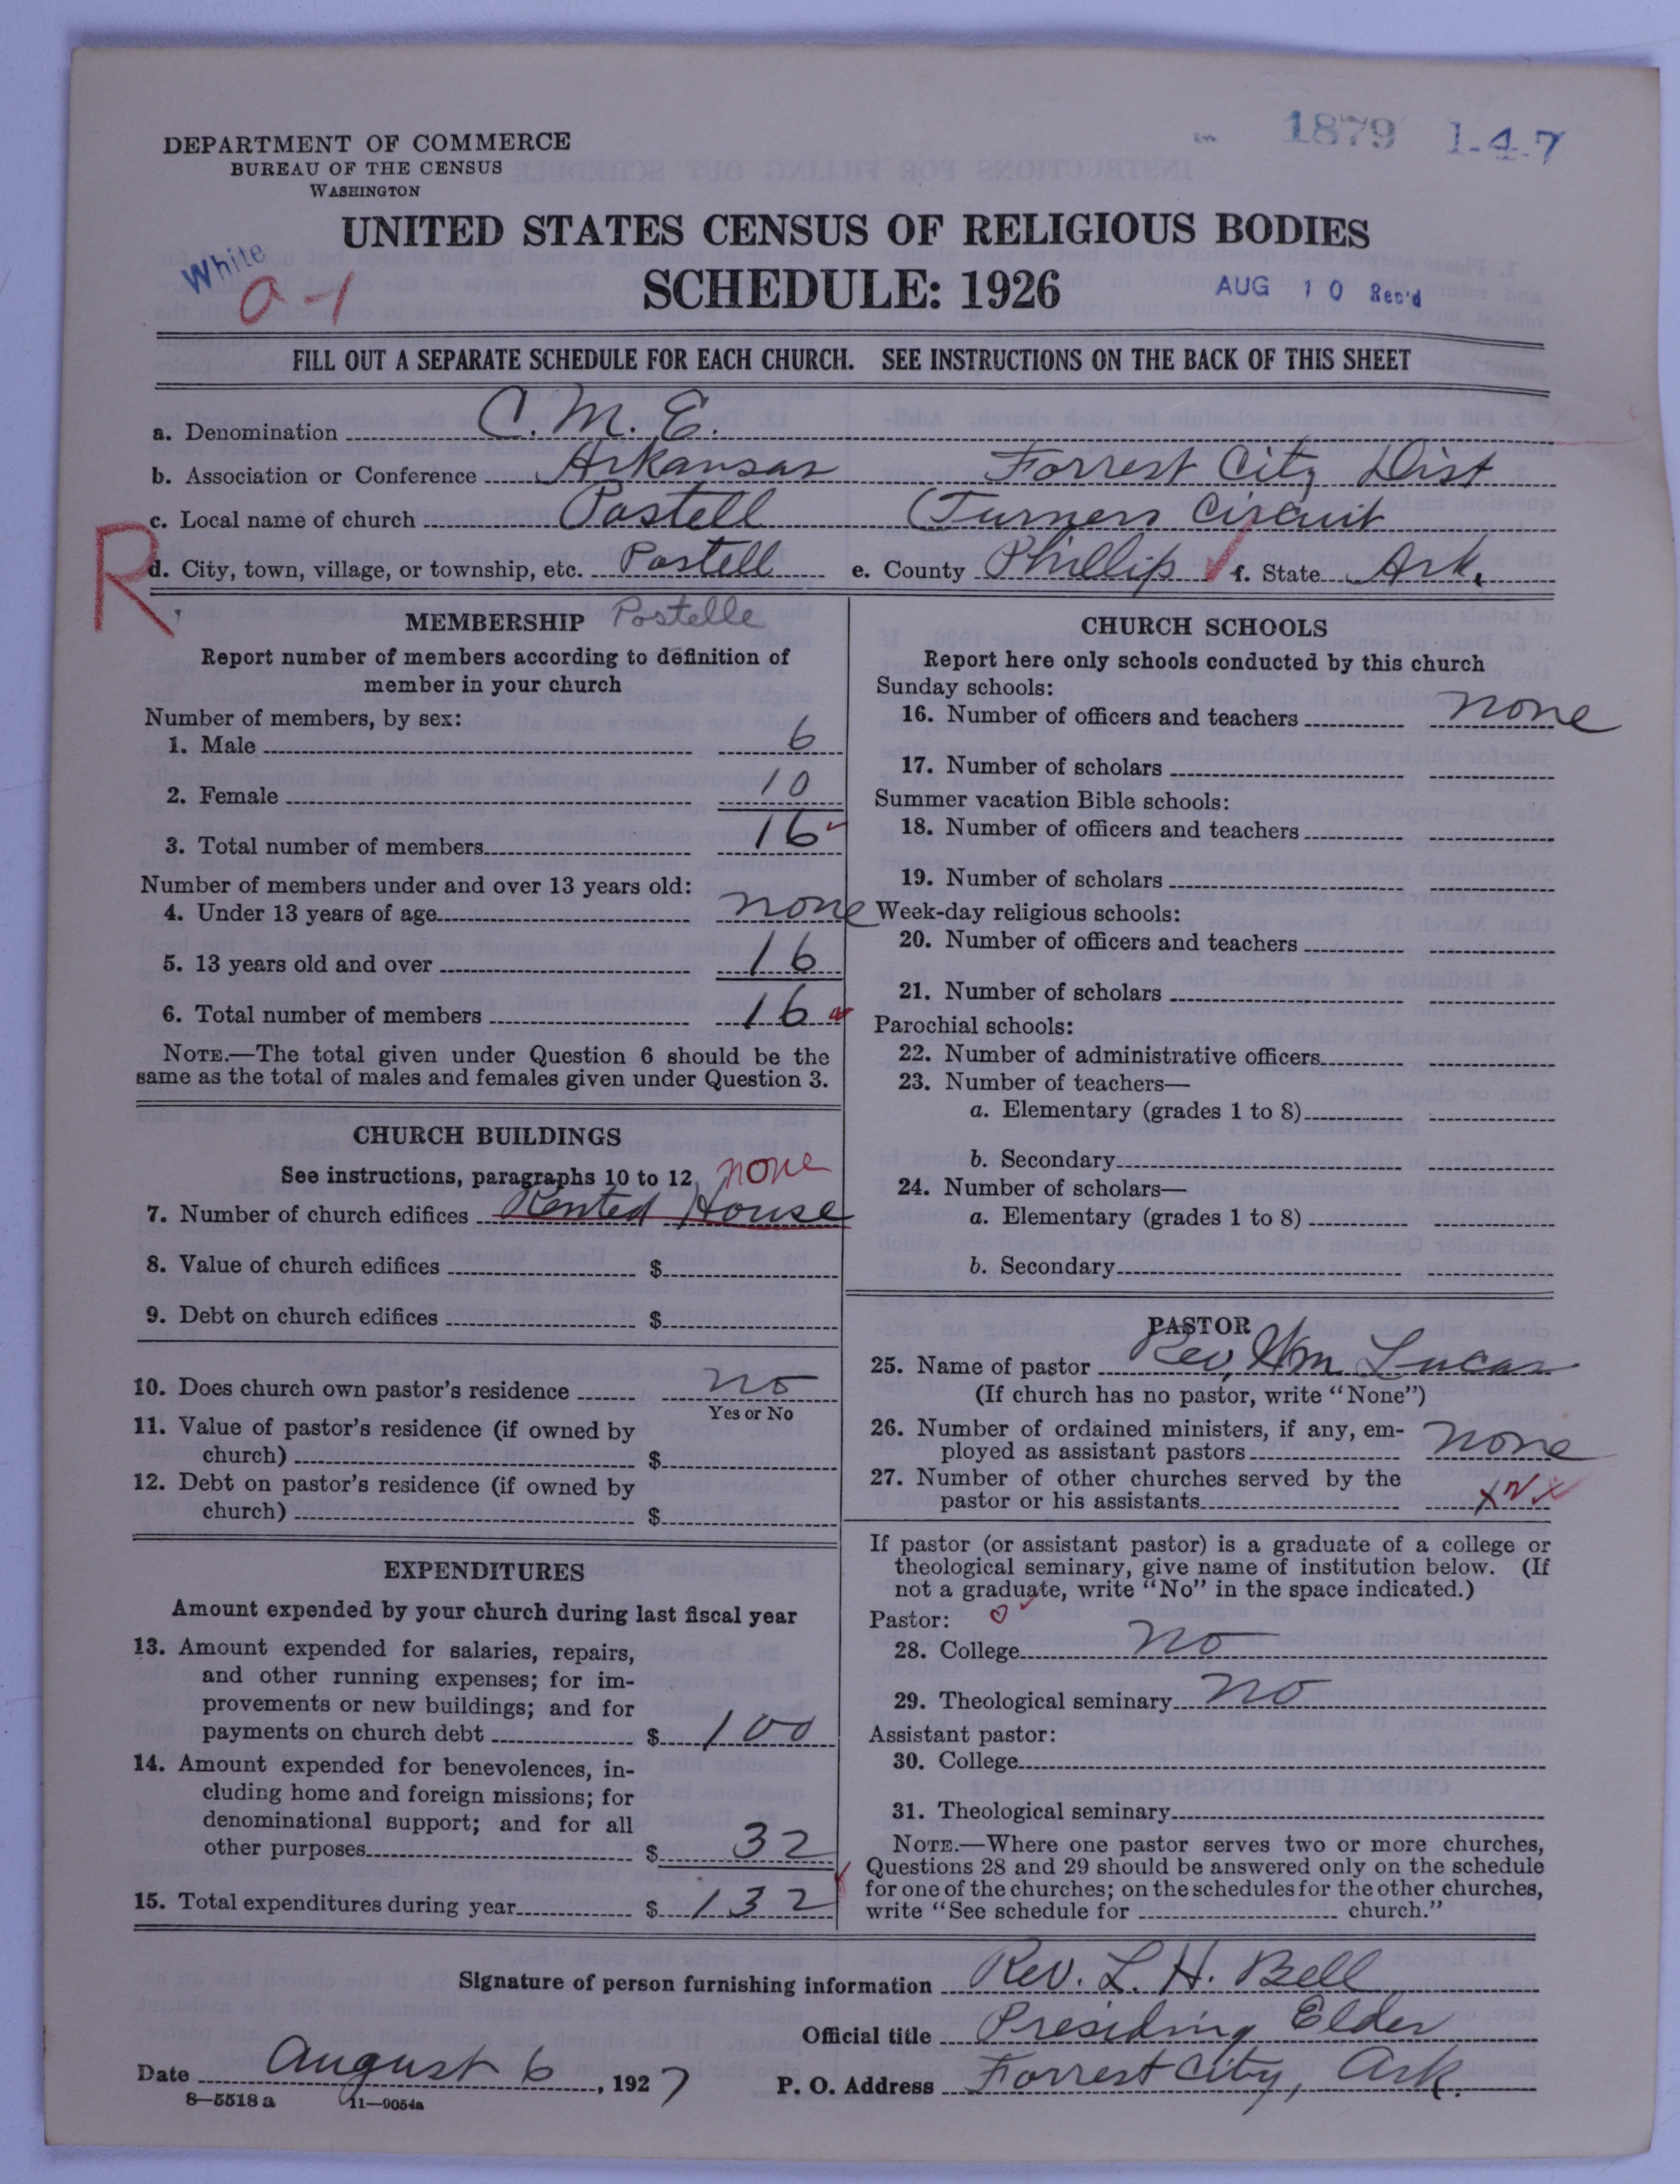 1879 1-4-7
DEPARTMENT OF COMMERCE
BUREAU OF THE CENSUS
WASHINGTON
UNITED STATES CENSUS OF RELIGIOUS BODIES
White
a-1
SCHEDULE: 1926
AUG 10 Rec'd
FILL OUT A SEPARATE SCHEDULE FOR EACH CHURCH. SEE INSTRUCTIONS ON THE BACK OF THIS SHEET
a. Denomination C. M. E.
b. Association or Conference Arkansas Forrest City Dist
c. Local name of church Postell (Turners Circuit
R
d. City, town, village, or township, etc. Postell e. County Phillip f. State Ark.
MEMBERSHIP Postelle
Report number of members according to definition of
member in your church
Number of members, by sex:
1. Male 6
2. Female 10
3. Total number of members 16
Number of members under and over 13 years old:
4. Under 13 years of age none
5. 13 years old and over 16
6. Total number of members 16
NOTE.—The total given under Question 6 should be the
same as the total of males and females given under Question 3.
CHURCH BUILDINGS
See instructions, paragraphs 10 to 12 none
7. Number of church edifices Rented House
8. Value of church edifices $
9. Debt on church edifices $
10. Does church own pastor's residence no
Yes or No
11. Value of pastor's residence (if owned by
church) $
12. Debt on pastor's residence (if owned by
church) $
EXPENDITURES
Amount expended by your church during last fiscal year
13. Amount expended for salaries, repairs,
and other running expenses; for im-
provements or new buildings; and for
payments on church debt $ 100
14. Amount expended for benevolences, in-
cluding home and foreign missions; for
denominational support; and for all
other purposes $ 32
15. Total expenditures during year $ 132
CHURCH SCHOOLS
Report here only schools conducted by this church
Sunday schools:
16. Number of officers and teachers none
17. Number of scholars
Summer vacation Bible schools:
18. Number of officers and teachers
19. Number of scholars
Week-day religious schools:
20. Number of officers and teachers
21. Number of scholars
Parochial schools:
22. Number of administrative officers
23. Number of teachers—
a. Elementary (grades 1 to 8)
b. Secondary
24. Number of scholars—
a. Elementary (grades 1 to 8)
b. Secondary
PASTOR
25. Name of pastor Rev. Wm Lucas
(If church has no pastor, write "None")
26. Number of ordained ministers, if any, em-
ployed as assistant pastors none
27. Number of other churches served by the
pastor or his assistants
If pastor (or assistant pastor) is a graduate of a college or
theological seminary, give name of institution below. (If
not a graduate, write "No" in the space indicated.)
Pastor: 0
28. College no
29. Theological seminary no
Assistant pastor:
30. College
31. Theological seminary
NOTE.—Where one pastor serves two or more churches,
Questions 28 and 29 should be answered only on the schedule
for one of the churches; on the schedules for the other churches,
write "See schedule for church."
Signature of person furnishing information Rev. L. H. Bell
Official title Presiding Elder
Date August 6, 1927 P. O. Address Forrest City, Ark.
8—5518 a 11—9054a